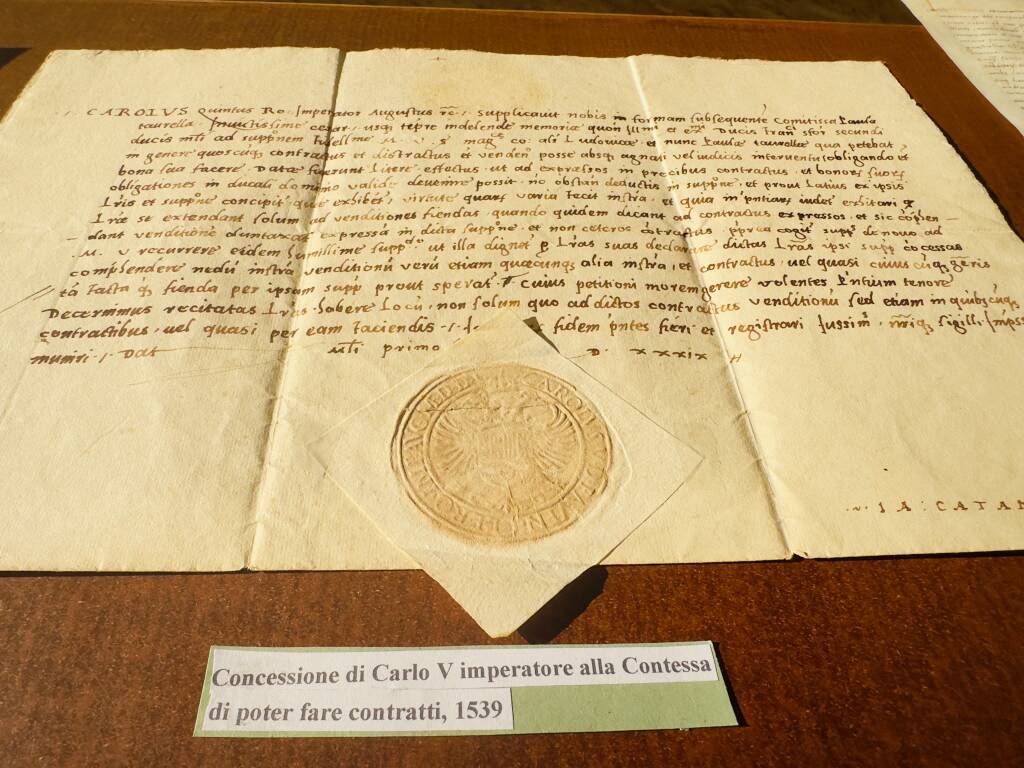 CAROLVS Quintus Ro. Imperator Augustus &c. Supplicavit nobis in formam subsequentem Comitissa Paula
taurella Invictissime cesar. usq tempore indelende memorie quon Illmi et Ducis Franci sfor secundi
ducis mli ad suppnem fidellme M. V. s magce co. ali Ludovicae et nunc Paulae taurellae qua petebat
in genere quoscuq contractus et distractus et venden posse absq agnati vel iudicis interventu obligando et
bona sua facere. Datae fuerunt litere effectus. ut ad expraessos in precibus contractus. et bonorum suorum
obligationes in ducali dominio valide devenire possit. no obstan deductis in suppne. et prout Latius ex ipsis
Lris et suppne concipit que exhibet. virtute quarum varia fecit instra. et quia
Lrae se extendant solum ad venditiones fiendas. quando quidem dicant ad contractus expressos. et sic
dant venditione duntaxat expressa in dicta suppne. et non ceteros contractus de novo ad
M. V recurrere eidem humillime ut illa dignet p Lras suas declarare dictas Lras ipsi supp cocessas
comphendere nedu instra venditionu veru etiam quaecunq alia instra. et contractus. vel quasi cuius cuq generis
ta facta q fienda per ipsam supp prout sperat. Cuius petitioni morem gerere volentes tenore
Decernimus recitatas Lras habere Locu. non solum quo ad dictos contractus venditionu sed etiam in quibscuq
contractibus. vel quasi per eam faciendis. fidem pntes fieri et registrari Iussim. nriq sigilli
muniri. Dat Mli primo D. XXXIX
CAROLVS
IA: CATA
Concessione di Carlo V imperatore alla Contessa
di poter fare contratti, 1539